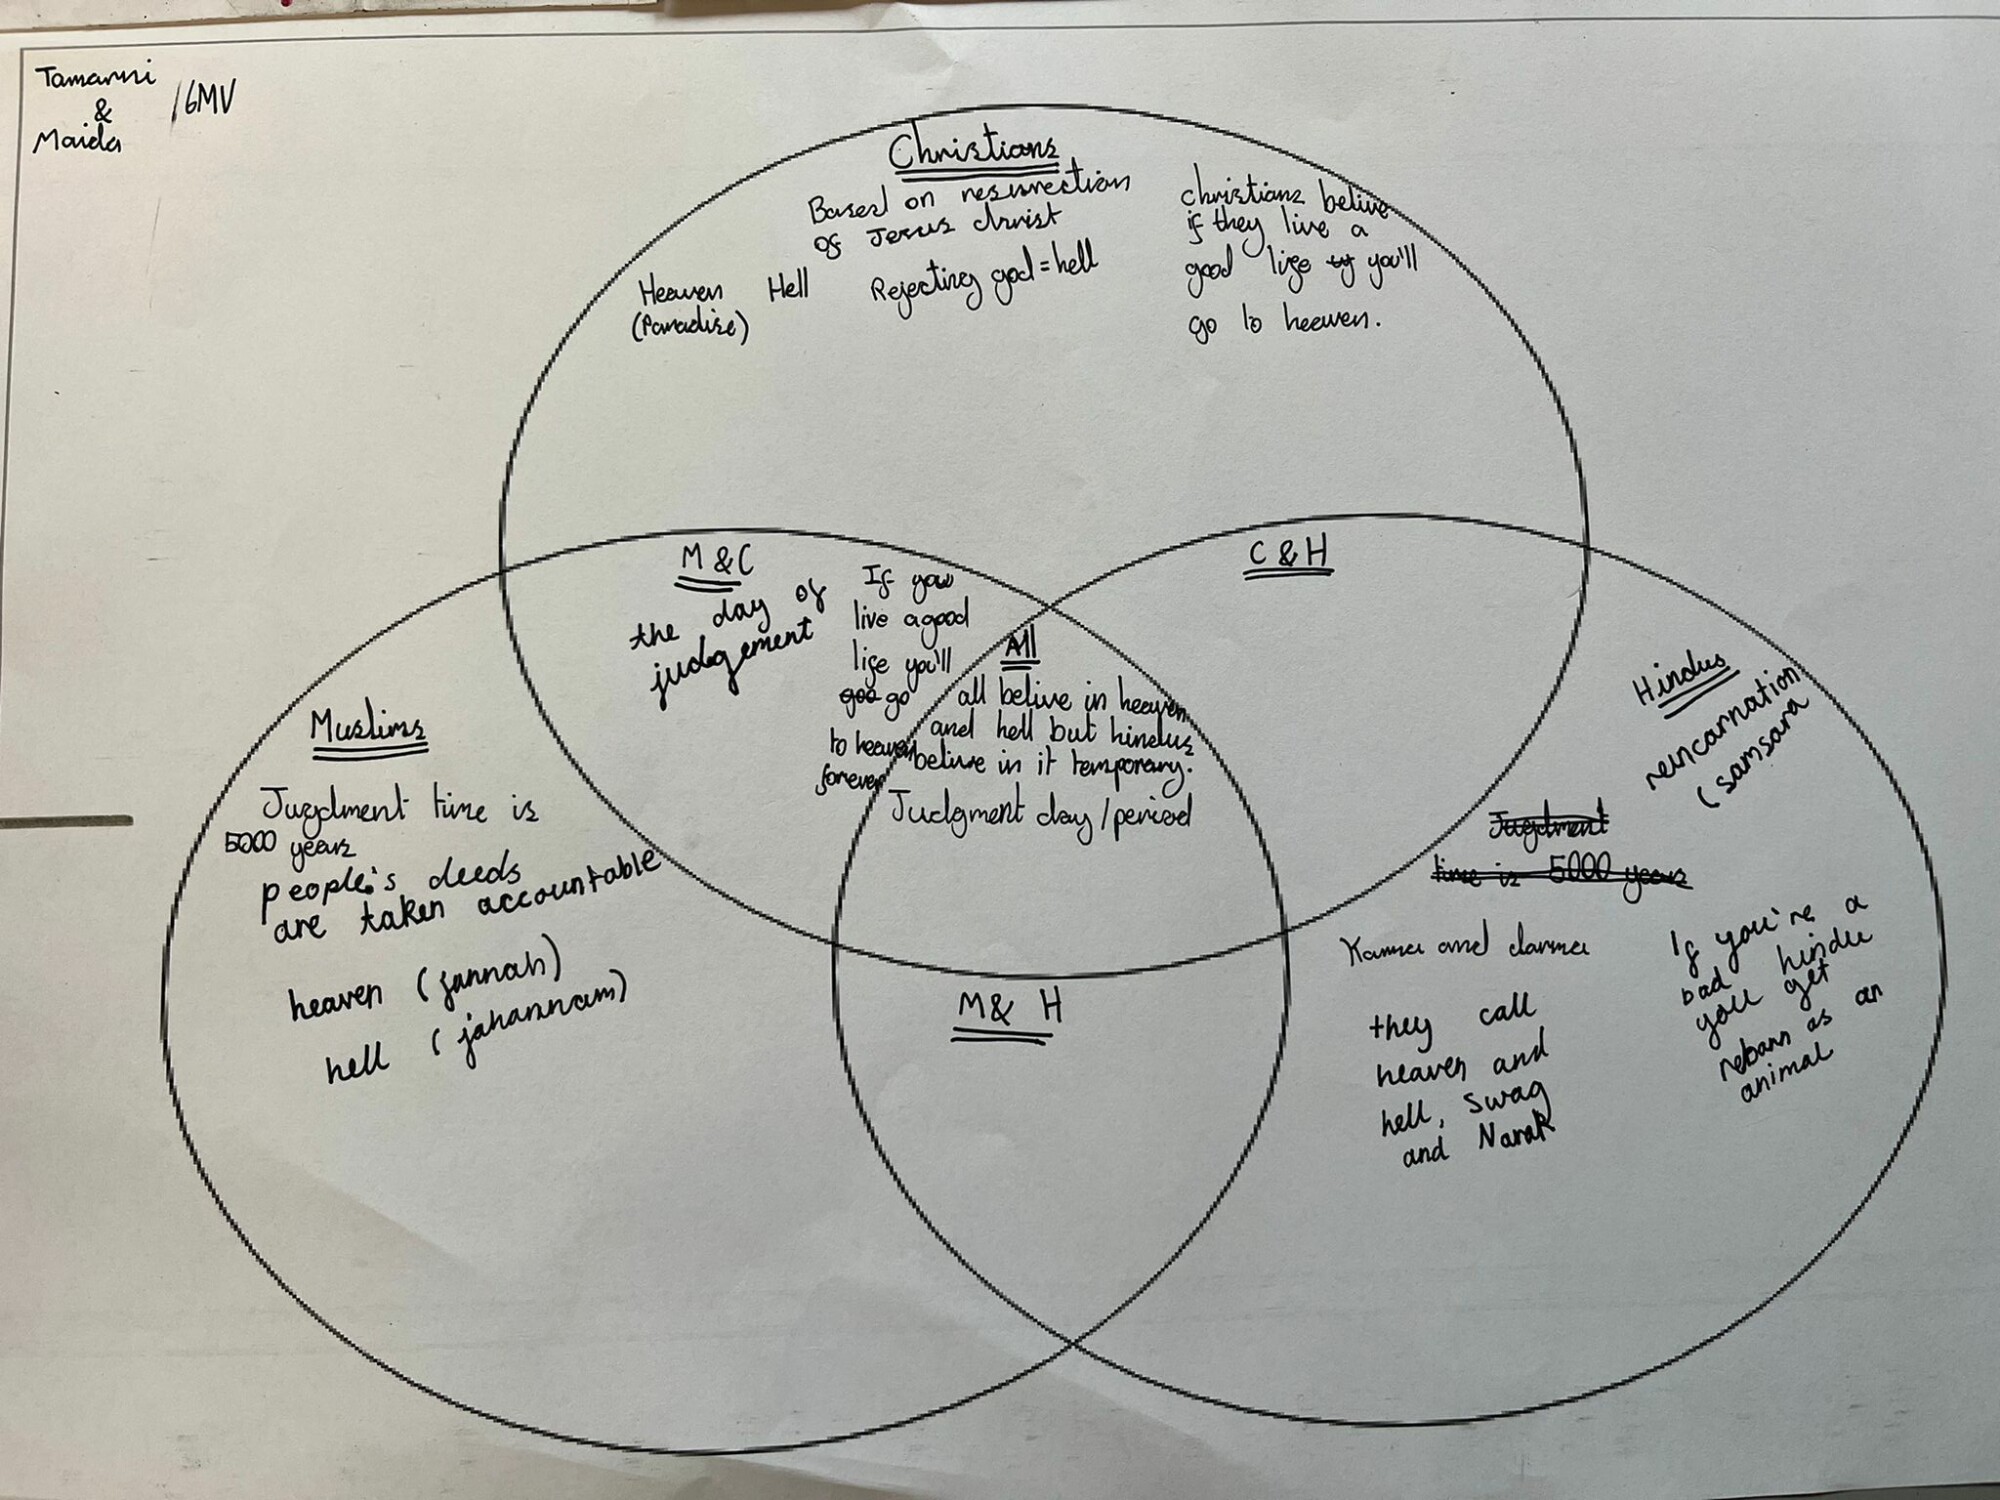 Tamanni
&
Maida
/6MV
Christians
Based on resurrection
of Jesus christ
Heaven
(Paradise)
Hell
Rejecting god = hell
christians belive
if they live a
good life you'll
go to heeven.
M & C
the day of
judgement
If you
live a good
life you'll
go
to heaven
forever
C & H
All
all belive in heaven
and hell but hindus
belive in it temporary.
Judgment day / period
Muslims
Jugdment time is
5000 years
people's deeds
are taken accountable
heaven (jannah)
hell (jahannam)
M & H
Hindus
reincarnation
(samsara
Jugdment
time is 5000 years
Karma and darma
they call
heaven and
hell, swag
and Narak
If you're a
bad hindu
you get
reborn as an
animal